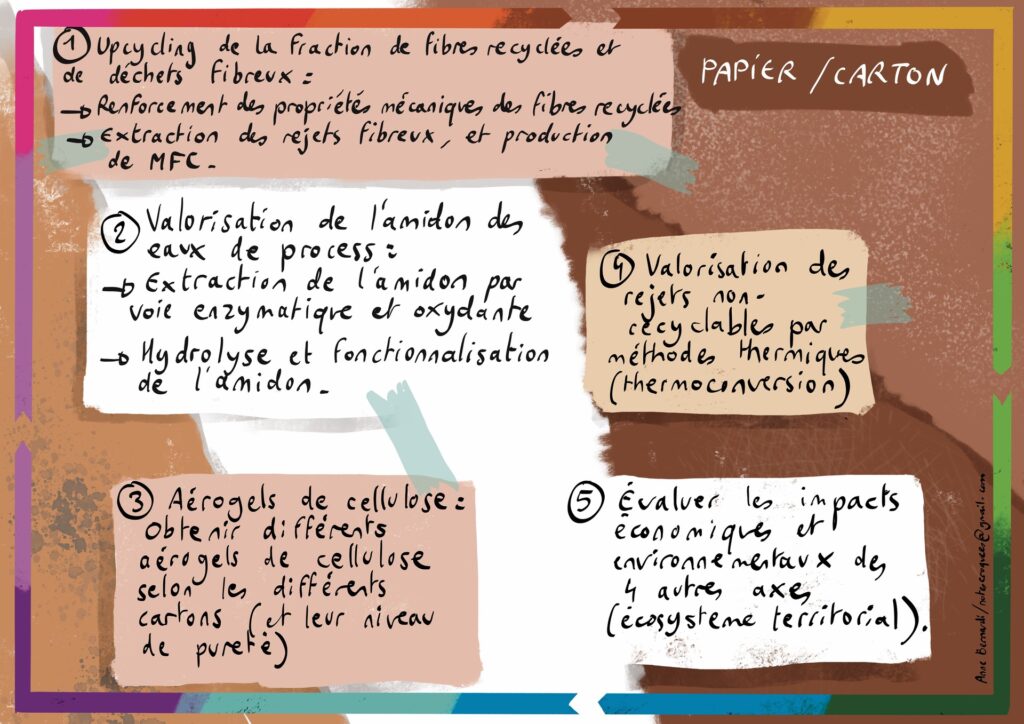 PAPIER / CARTON
1 Upcycling de la fraction de fibres recyclées et
de déchets fibreux :
→ Renforcement des propriétés mécaniques des fibres recyclées
→ Extraction des rejets fibreux, et production
de MFC.
2 Valorisation de l'amidon des
eaux de process :
→ Extraction de l'amidon par
voie enzymatique et oxydante
→ Hydrolyse et fonctionnalisation
de l'amidon.
3 Aérogels de cellulose :
Obtenir différents
aérogels de cellulose
selon les différents
cartons (et leur niveau
de pureté)
4 Valorisation des
rejets non-
recyclables par
méthodes thermiques
(thermoconversion)
5 Évaluer les impacts
économiques et
environnementaux des
4 autres axes
(écosystème territorial).
Anne Bernardi/notescroquees@gmail.com